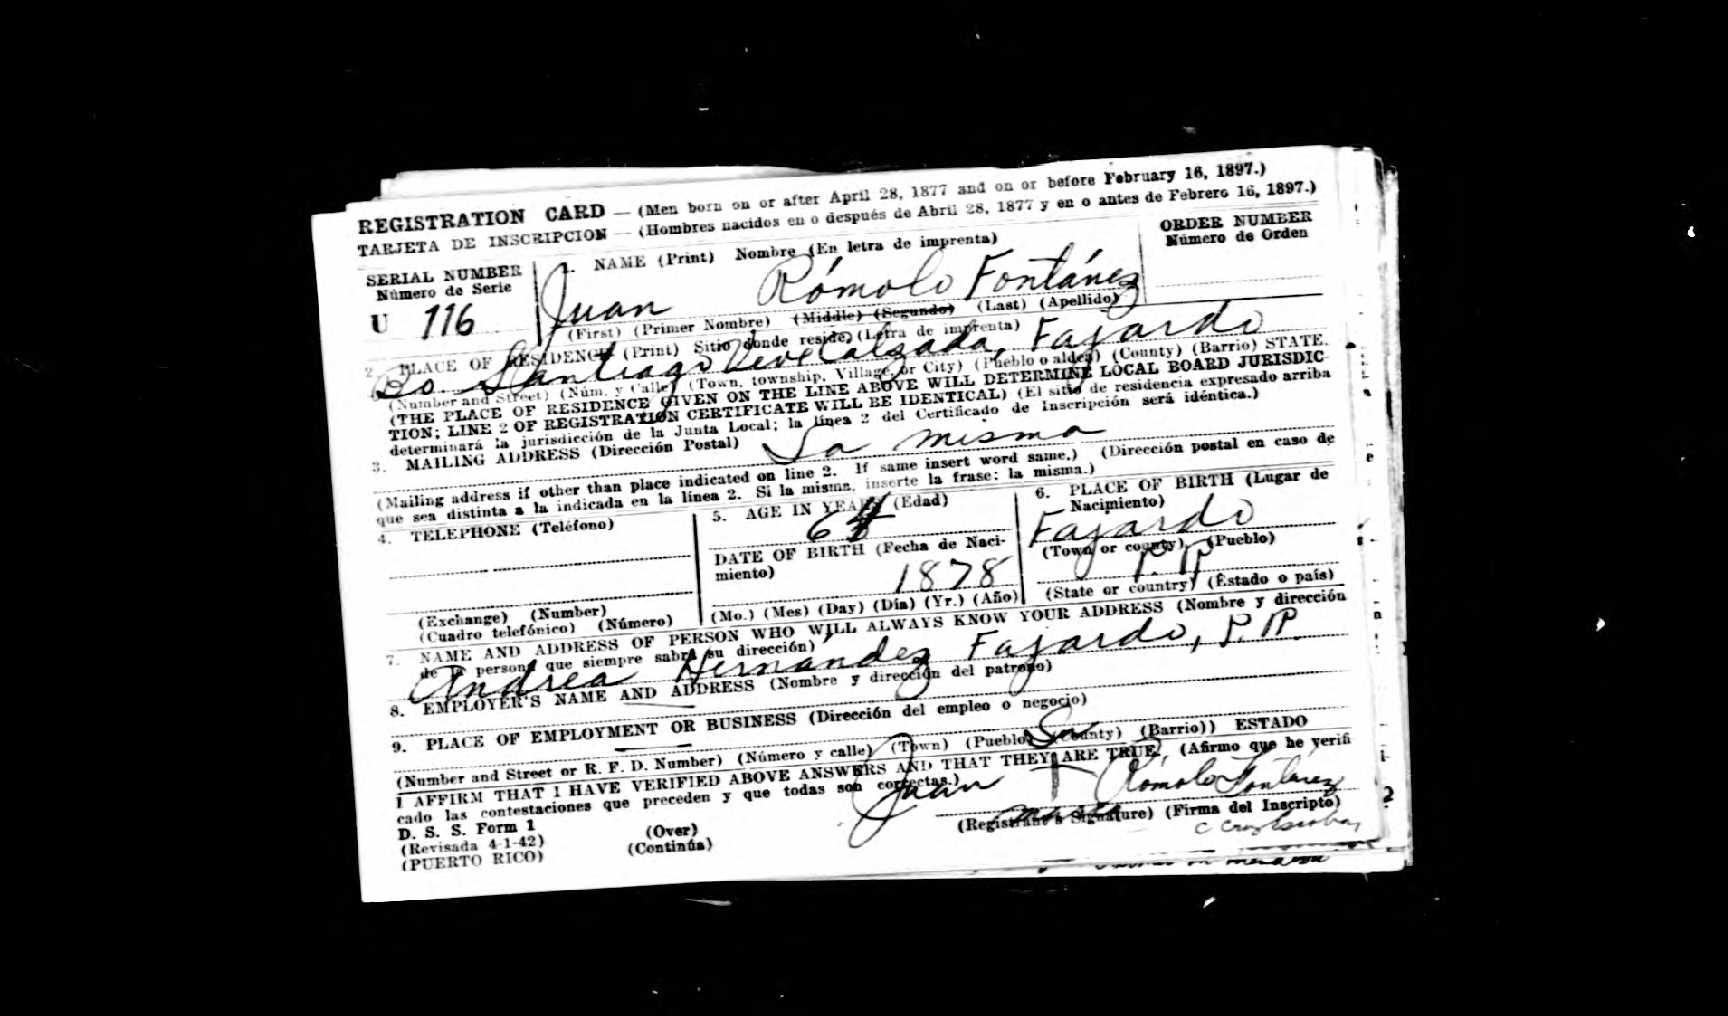 REGISTRATION CARD — (Men born on or after April 28, 1877 and on or before February 16, 1897.)
TARJETA DE INSCRIPCION — (Hombres nacidos en o después de Abril 28, 1877 y en o antes de Febrero 16, 1897.)
SERIAL NUMBER
Número de Serie
U 116
1. NAME (Print) Nombre (En letra de imprenta)
Juan Rómolo Fontánez
(First) (Primer Nombre) (Middle) (Segundo) (Last) (Apellido)
ORDER NUMBER
Número de Orden
2. PLACE OF RESIDENCE (Print) Sitio donde reside (Letra de imprenta)
Bo. Santiago Calzada, Fajardo
(Number and Street) (Núm. y Calle) (Town, township, Village or City) (Pueblo o aldea) (County) (Barrio) STATE.
(THE PLACE OF RESIDENCE GIVEN ON THE LINE ABOVE WILL DETERMINE LOCAL BOARD JURISDIC-
TION; LINE 2 OF REGISTRATION CERTIFICATE WILL BE IDENTICAL) (El sitio de residencia expresado arriba
determinará la jurisdicción de la Junta Local; la línea 2 del Certificado de Inscripción será idéntica.)
3. MAILING ADDRESS (Dirección Postal)
La misma
(Mailing address if other than place indicated on line 2. If same insert word same.) (Dirección postal en caso de
que sea distinta a la indicada en la línea 2. Si la misma, inserte la frase: la misma.)
4. TELEPHONE (Teléfono)
(Exchange) (Number)
(Cuadro telefónico) (Número)
5. AGE IN YEARS (Edad)
64
DATE OF BIRTH (Fecha de Naci-
miento)
1878
(Mo.) (Mes) (Day) (Día) (Yr.) (Año)
6. PLACE OF BIRTH (Lugar de
Nacimiento)
Fajardo
(Town or county) (Pueblo)
P.R.
(State or country) (Estado o país)
7. NAME AND ADDRESS OF PERSON WHO WILL ALWAYS KNOW YOUR ADDRESS (Nombre y dirección
de la persona que siempre sabrá su dirección)
Andrea Hernández Fajardo, P.R.
8. EMPLOYER'S NAME AND ADDRESS (Nombre y dirección del patrono)
9. PLACE OF EMPLOYMENT OR BUSINESS (Dirección del empleo o negocio)
(Number and Street or R. F. D. Number) (Número y calle) (Town) (Pueblo) (County) (Barrio)) ESTADO
Su
I AFFIRM THAT I HAVE VERIFIED ABOVE ANSWERS AND THAT THEY ARE TRUE. (Afirmo que he verifi
cado las contestaciones que preceden y que todas son correctas.)
Juan + Rómolo Fontánez
marca
(Registrant's Signature) (Firma del Inscripto)
D. S. S. Form 1
(Revisada 4-1-42)
(PUERTO RICO)
(Over)
(Continúa)